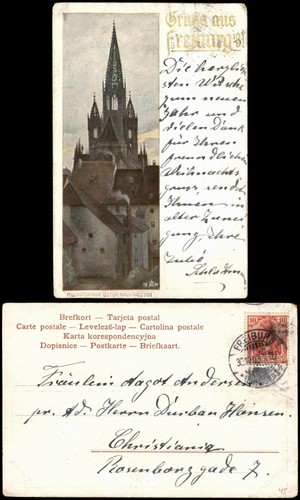 Gruss aus
Freiburg
Die herzlich-
sten Wünsche
zum neuen
Jahr und
vielen Dank
für Ihren
freundlichen
Weihnachts
gruss, sendet
Ihnen in
alter Zunei
gung, Ihre
MÜNSTER VON OSTEN NACH WESTEN
Brefkort — Tarjeta postal
Carte postale — Levelező-lap — Cartolina postale
Karta korespondencyjna
Dopisnice — Postkarte — Briefkaart.
10 10
FREIBURG
Fräulein Aagot Andersen
pr. Ad. Herrn Durban Hansen.
Christiania
Rosenborggade 7.